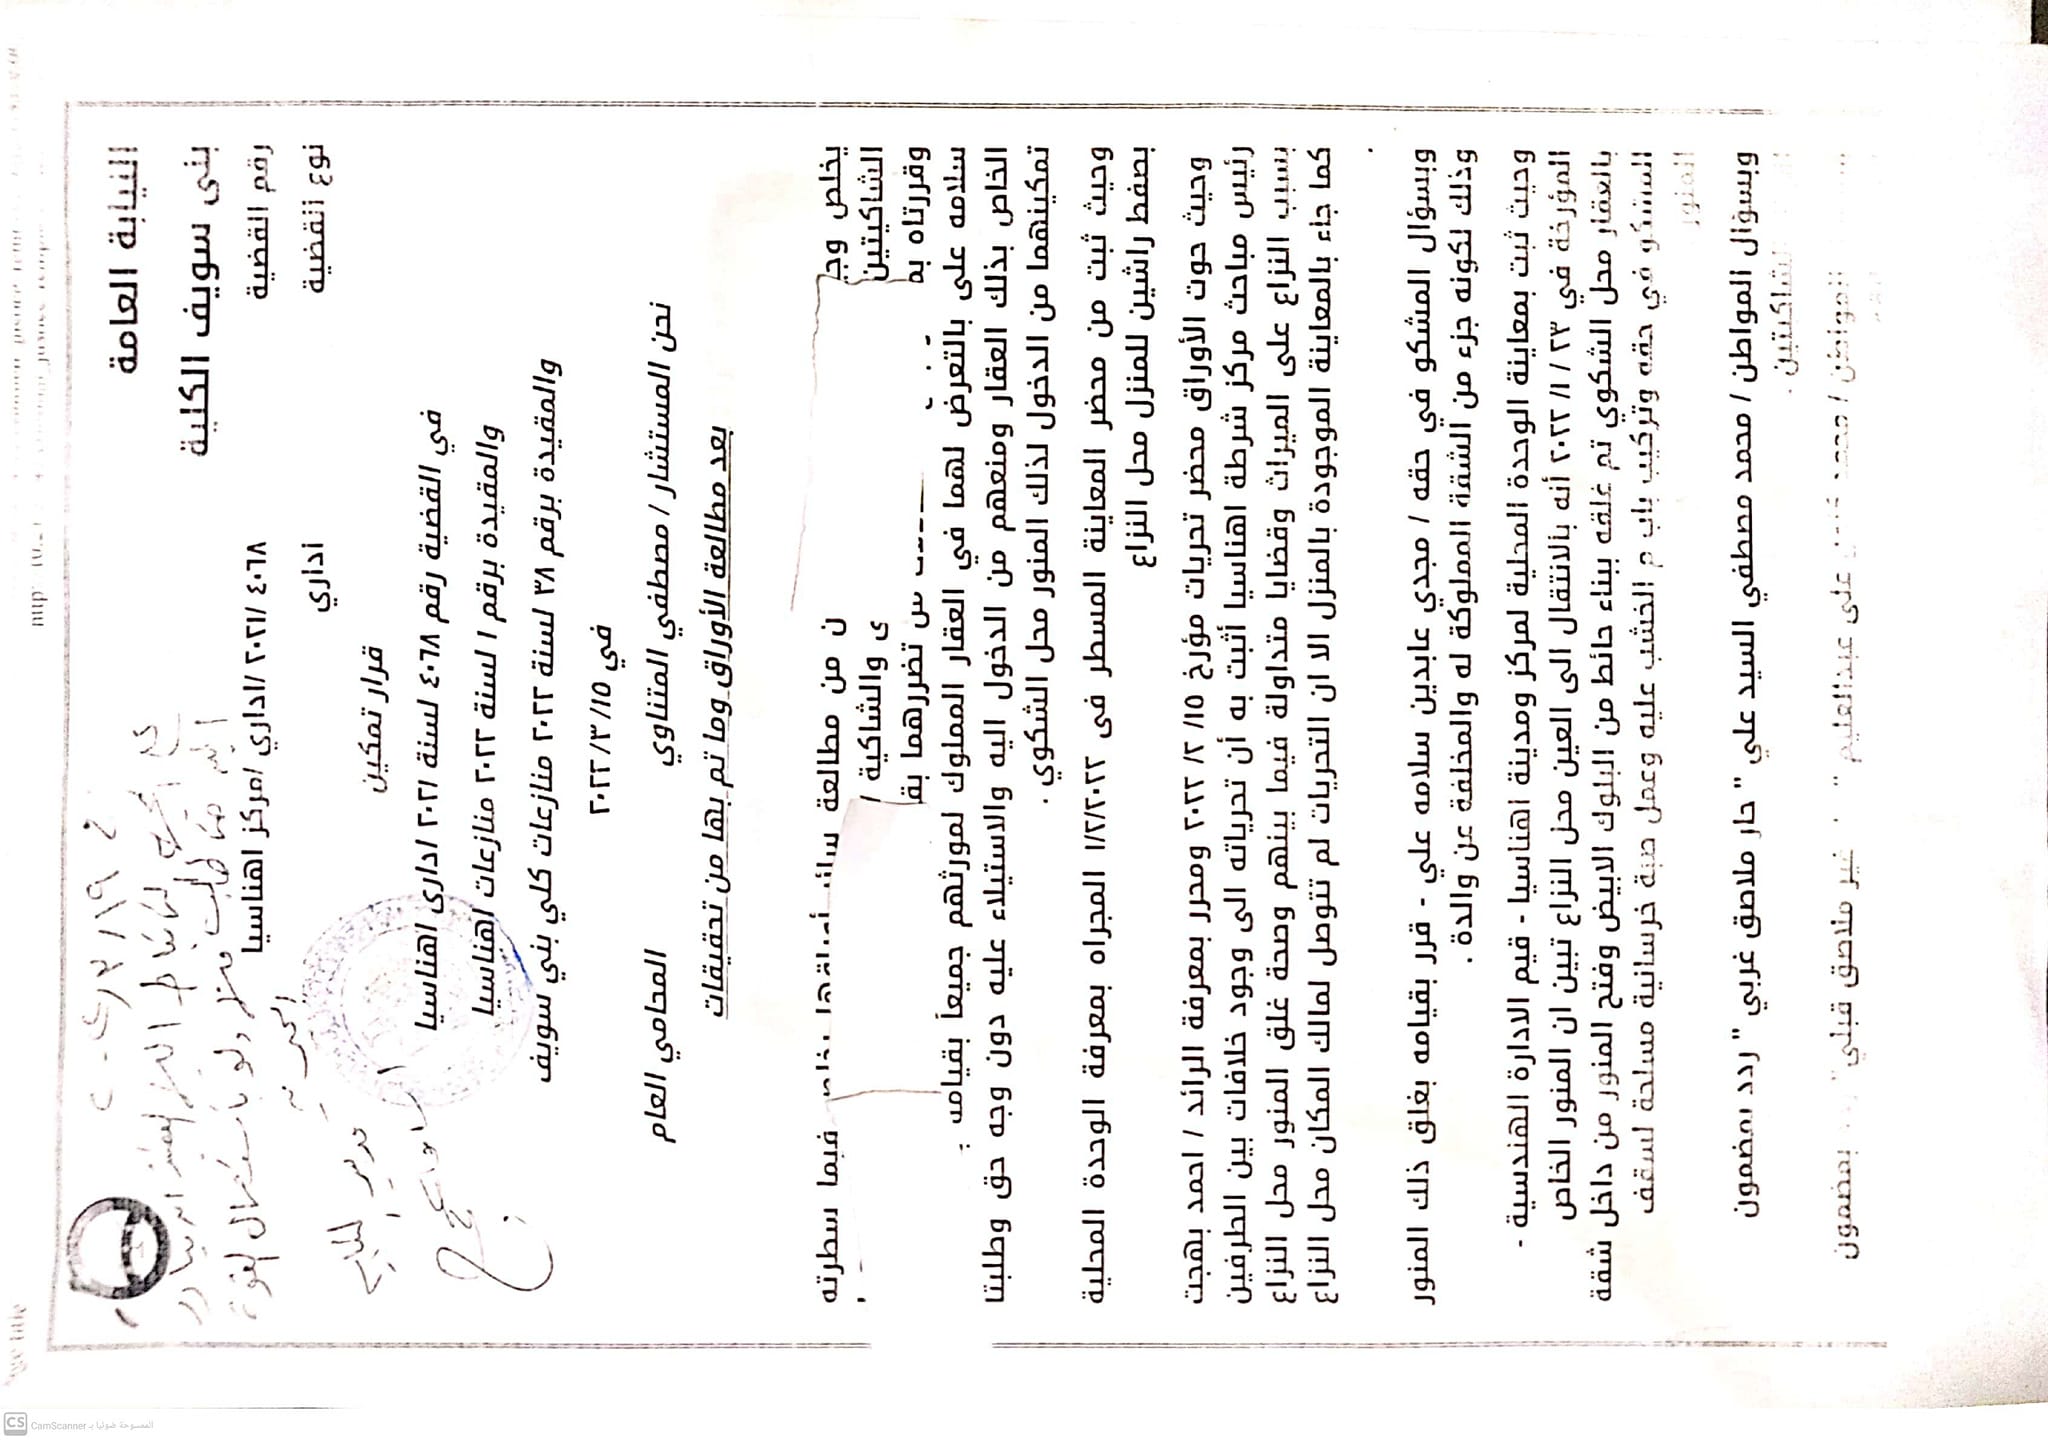 النيابة العامة
بنى سويف الكلية
رقم القضية ٤٠٦٨ /٢٠٢١ /اداري /مركز اهناسيا
نوع القضية اداري
قرار تمكين
في القضية رقم ٤٠٦٨ لسنة ٢٠٢١ ادارى اهناسيا
والمقيدة برقم ١ لسنة ٢٠٢٢ منازعات اهناسيا
والمقيدة برقم ٣٨ لسنة ٢٠٢٢ منازعات كلي بني سويف
في ١٥/ ٣/ ٢٠٢٢
نحن المستشار / مصطفي المتناوي المحامي العام
بعد مطالعة الأوراق وما تم بها من تحقيقات
يخلص من مطالعة سائر أوراقها يخلص فيما سطرته
الشاكيتين والشاكية /
وقررتاه تضررهما
سلامه على بالتعرض لهما في العقار المملوك لمورثهم جميعاً
الخاص بذلك العقار ومنعهم من الدخول اليه والاستيلاء عليه دون وجه حق وطلبتا
تمكينهما من الدخول لذلك المنور محل الشكوي .
وحيث ثبت من محضر المعاينة المسطر فى ١/٢/٢٠٢٢ المجراه بمعرفة الوحدة المحلية
بصفط راشين للمنزل محل النزاع
وحيث حوت الأوراق محضر تحريات مؤرخ ١٥/ ٢/ ٢٠٢٢ ومحرر بمعرفة الرائد / احمد بهجت
رئيس مباحث مركز شرطة اهناسيا أثبت به أن تحرياته الى وجود خلافات بين الطرفين
بسبب النزاع على الميراث وقضايا متداولة فيما بينهم وصحة غلق المنور محل النزاع
كما جاء بالمعاينة الموجودة بالمنزل الا ان التحريات لم تتوصل لمالك المكان محل النزاع
.
وبسؤال المشكو في حقه / مجدي عابدين سلامه علي - قرر بقيامه بغلق ذلك المنور
وذلك لكونه جزء من الشقة المملوكة له والمخلفة عن والدة .
وحيث ثبت بمعاينة الوحدة المحلية لمركز ومدينة اهناسيا - قيم الادارة الهندسية -
المؤرخة في ٢٣ / ١/ ٢٠٢٢ أنه بالانتقال الى العين محل النزاع تبين ان المنور الخاص
بالعقار محل الشكوي تم غلقه ببناء حائط من البلوك الابيض وفتح المنور من داخل شقة
المشكو في حقه وتركيب باب م الخشب عليه وعمل صبة خرسانية مسلحة لسقف
المنور
وبسؤال المواطن / محمد مصطفي السيد علي " جار ملاصق غربي " ردد بمضمون
الشاكيتين .
المواطن / محمد على عبدالعليم " غير ملاصق قبلي" بمضمون